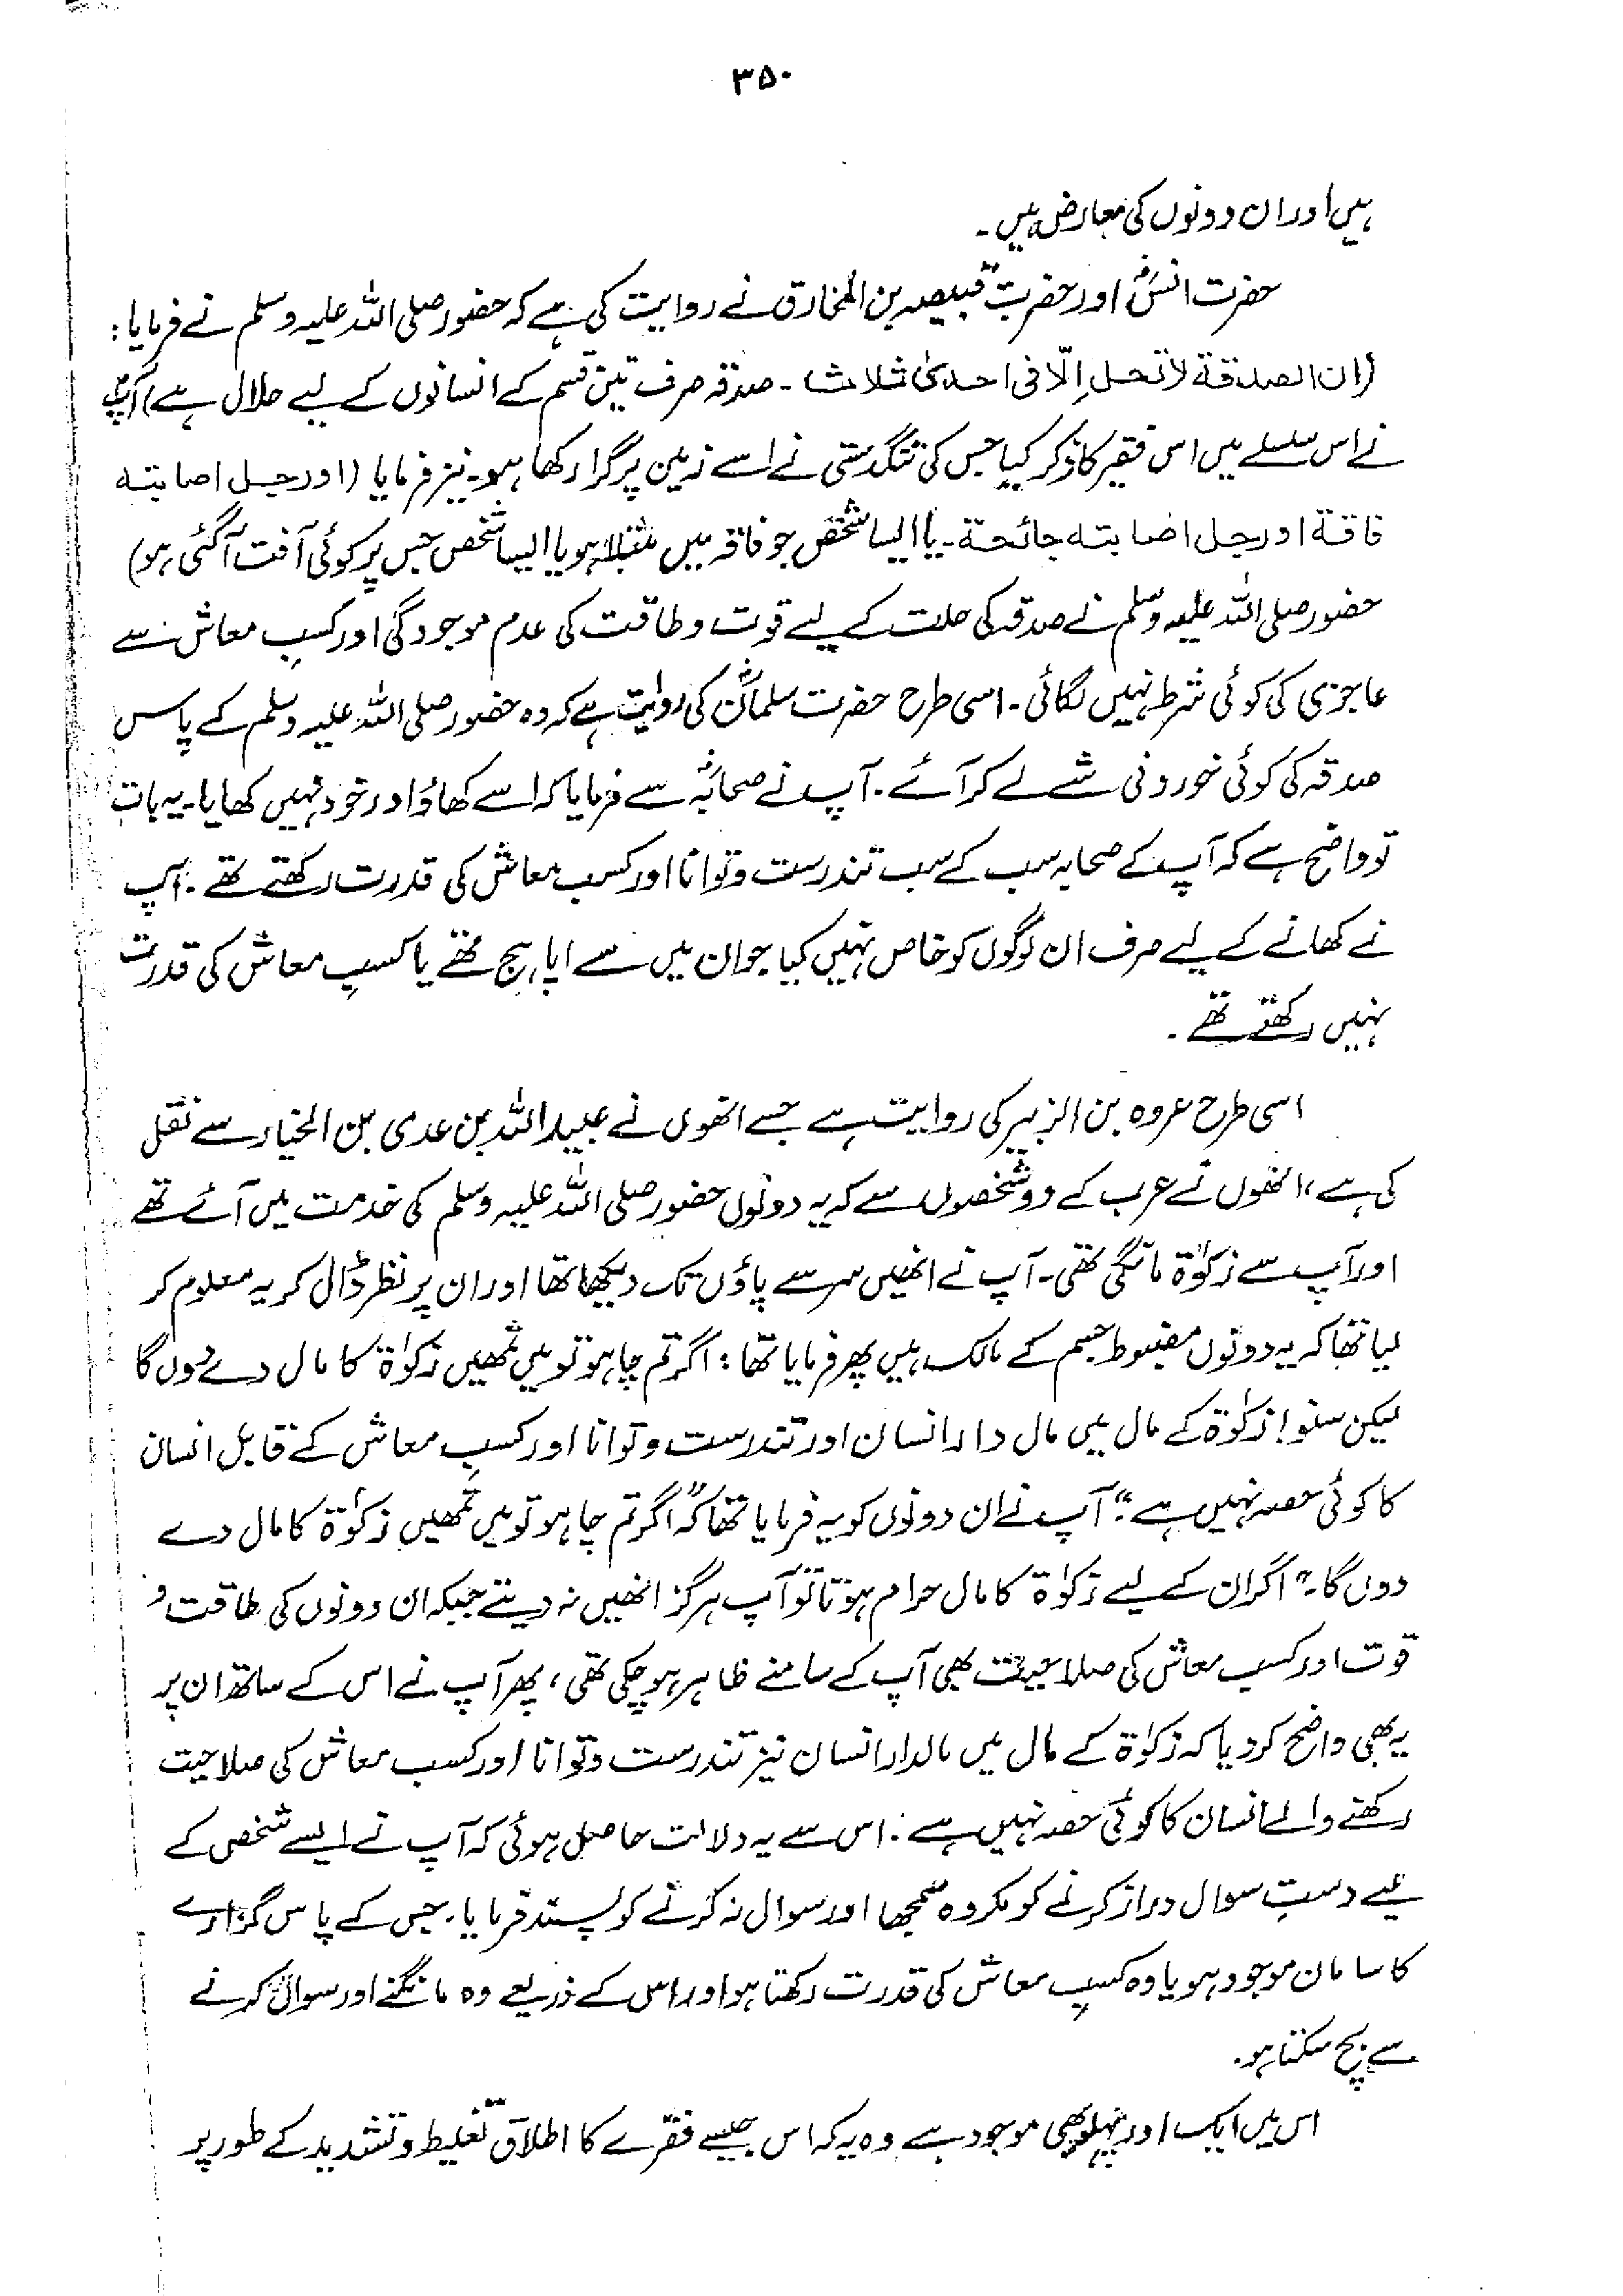 ۳۵۰
ہیں اور ان دونوں کی معارض ہیں۔
حضرت انسؓ اور حضرت قبیصہ بن المخارق نے روایت کی ہے کہ حضور صلی اللہ علیہ وسلم نے فرمایا:
(ان الصدقة لا تحل اِلّا فی احدیٰ ثلاث۔ صدقہ صرف تین قسم کے انسانوں کے لیے حلال ہے) آپؐ
نے اس سلسلے میں اس فقیر کا ذکر کیا جس کی تنگدستی نے اسے زمین پر گرا رکھا ہو۔ نیز فرمایا (اورجل اصابته
فاقة اورجل اصابته جائحة۔ یا ایسا شخص جو فاقہ میں مبتلا ہو یا ایسا شخص جس پر کوئی آفت آ گئی ہو)
حضور صلی اللہ علیہ وسلم نے صدقہ کی حلت کے لیے قوت و طاقت کی عدم موجودگی اور کسبِ معاش سے
عاجزی کی کوئی شرط نہیں لگائی۔ اسی طرح حضرت سلمانؓ کی روایت ہے کہ وہ حضور صلی اللہ علیہ وسلم کے پاس
صدقہ کی کوئی خوردنی شے لے کر آئے۔ آپ نے صحابہؓ سے فرمایا کہ اسے کھاؤ اور خود نہیں کھایا۔ یہ بات
تو واضح ہے کہ آپ کے صحابہ سب کے سب تندرست و توانا اور کسب معاش کی قدرت رکھتے تھے۔ آپ
نے کھانے کے لیے صرف ان لوگوں کو خاص نہیں کیا جو ان میں سے اپاہج تھے یا کسبِ معاش کی قدرت
نہیں رکھتے تھے۔
اسی طرح عروہ بن الزبیر کی روایت ہے جسے انھوں نے عبیداللہ بن عدی بن الخیار سے نقل
کی ہے، انھوں نے عرب کے دو شخصوں سے کہ یہ دونوں حضور صلی اللہ علیہ وسلم کی خدمت میں آئے تھے
اور آپ سے زکوٰۃ مانگی تھی۔ آپ نے انھیں سر سے پاؤں تک دیکھا تھا اور ان پر نظر ڈال کر یہ معلوم کر
لیا تھا کہ یہ دونوں مضبوط جسم کے مالک ہیں پھر فرمایا تھا: اگر تم چاہو تو میں تمھیں زکوٰۃ کا مال دے دوں گا
لیکن سنو! زکوٰۃ کے مال میں مال دار انسان اور تندرست و توانا اور کسبِ معاش کے قابل انسان
کا کوئی حصہ نہیں ہے" آپ نے ان دونوں کو یہ فرمایا تھا کہ "اگر تم چاہو تو میں تمھیں زکوٰۃ کا مال دے
دوں گا۔" اگر ان کے لیے زکوٰۃ کا مال حرام ہوتا تو آپ ہرگز انھیں نہ دیتے جبکہ ان دونوں کی طاقت و
قوت اور کسب معاش کی صلاحیت بھی آپ کے سامنے ظاہر ہو چکی تھی، پھر آپ نے اس کے ساتھ ان پر
یہ بھی واضح کر دیا کہ زکوٰۃ کے مال میں مالدار انسان نیز تندرست و توانا اور کسب معاش کی صلاحیت
رکھنے والے انسان کا کوئی حصہ نہیں ہے۔ اس سے یہ دلالت حاصل ہوئی کہ آپ نے ایسے شخص کے
لیے دستِ سوال دراز کرنے کو مکروہ سمجھا اور سوال نہ کرنے کو پسند فرمایا۔ جس کے پاس گزارے
کا سامان موجود ہو یا وہ کسبِ معاش کی قدرت رکھتا ہو اور اس کے ذریعے وہ مانگنے اور سوال کرنے
سے بچ سکتا ہو۔
اس میں ایک اور پہلو بھی موجود ہے وہ یہ کہ اس جیسے فقرے کا اطلاق تغلیط و تشدید کے طور پر